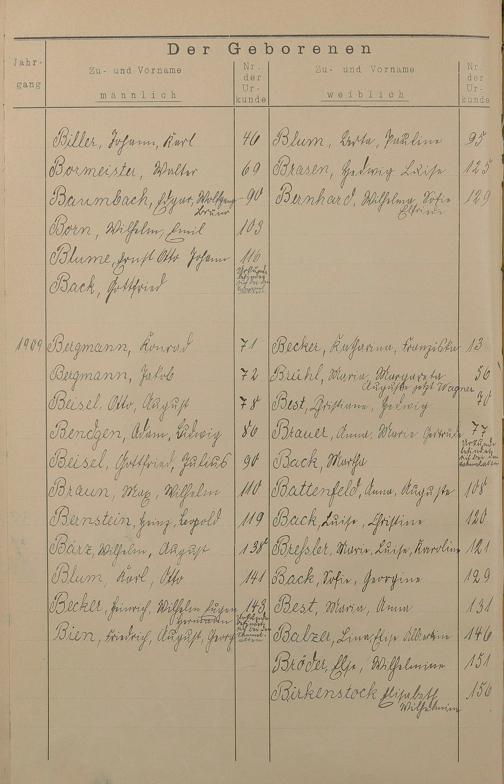 Der Geborenen
Jahr-
gang
Zu- und Vorname
männlich
Nr.
der
Ur-
kunde
Zu- und Vorname
weiblich
Nr.
der
Ur-
kunde
Biller, Johann, Karl 40 Blum, Berta, Pauline 95
Bormeister, Walter 69 Brasen, Hedwig Luise 125
Baumbach, Edgar, Wolfgang 90 Bernhard, Wilhelma, Sofie 129
Bruno
Born, Wilhelm, Emil 103
Blume, Ernst Otto Johann 116
Back, Gottfried
1909 Bergmann, Konrad 71 Becker, Katharina, Franziska 13
Bergmann, Jakob 72 Brühl, Maria, Margareta 56
Auguste jetzt Wagner
Beisel, Otto, August 78 Best, Christiane, Hedwig 70
Bendgen, Adam, Ludwig 86 Brauer, Anna, Marie Gertrude 77
Beisel, Gottfried, Julius 90 Back, Martha
Braun, Max, Wilhelm 110 Battenfeld, Anna, Auguste 108
Bernstein, Heinz, Leopold 119 Back, Luise, Christine 120
Bärz, Wilhelm, August 138 Bressler, Marie, Luise, Karoline 121
Blum, Karl, Otto 141 Back, Sofie, Georgine 129
Becker, Heinrich, Wilhelm Eugen 143 Best, Maria, Anna 131
Hermann
Bien, Friedrich, August, Georg Balzer, Lina, Else Albertine 146
Bröder, Else, Wilhelmine 151
Birkenstock, Elisabeth 156
Wilhelmine